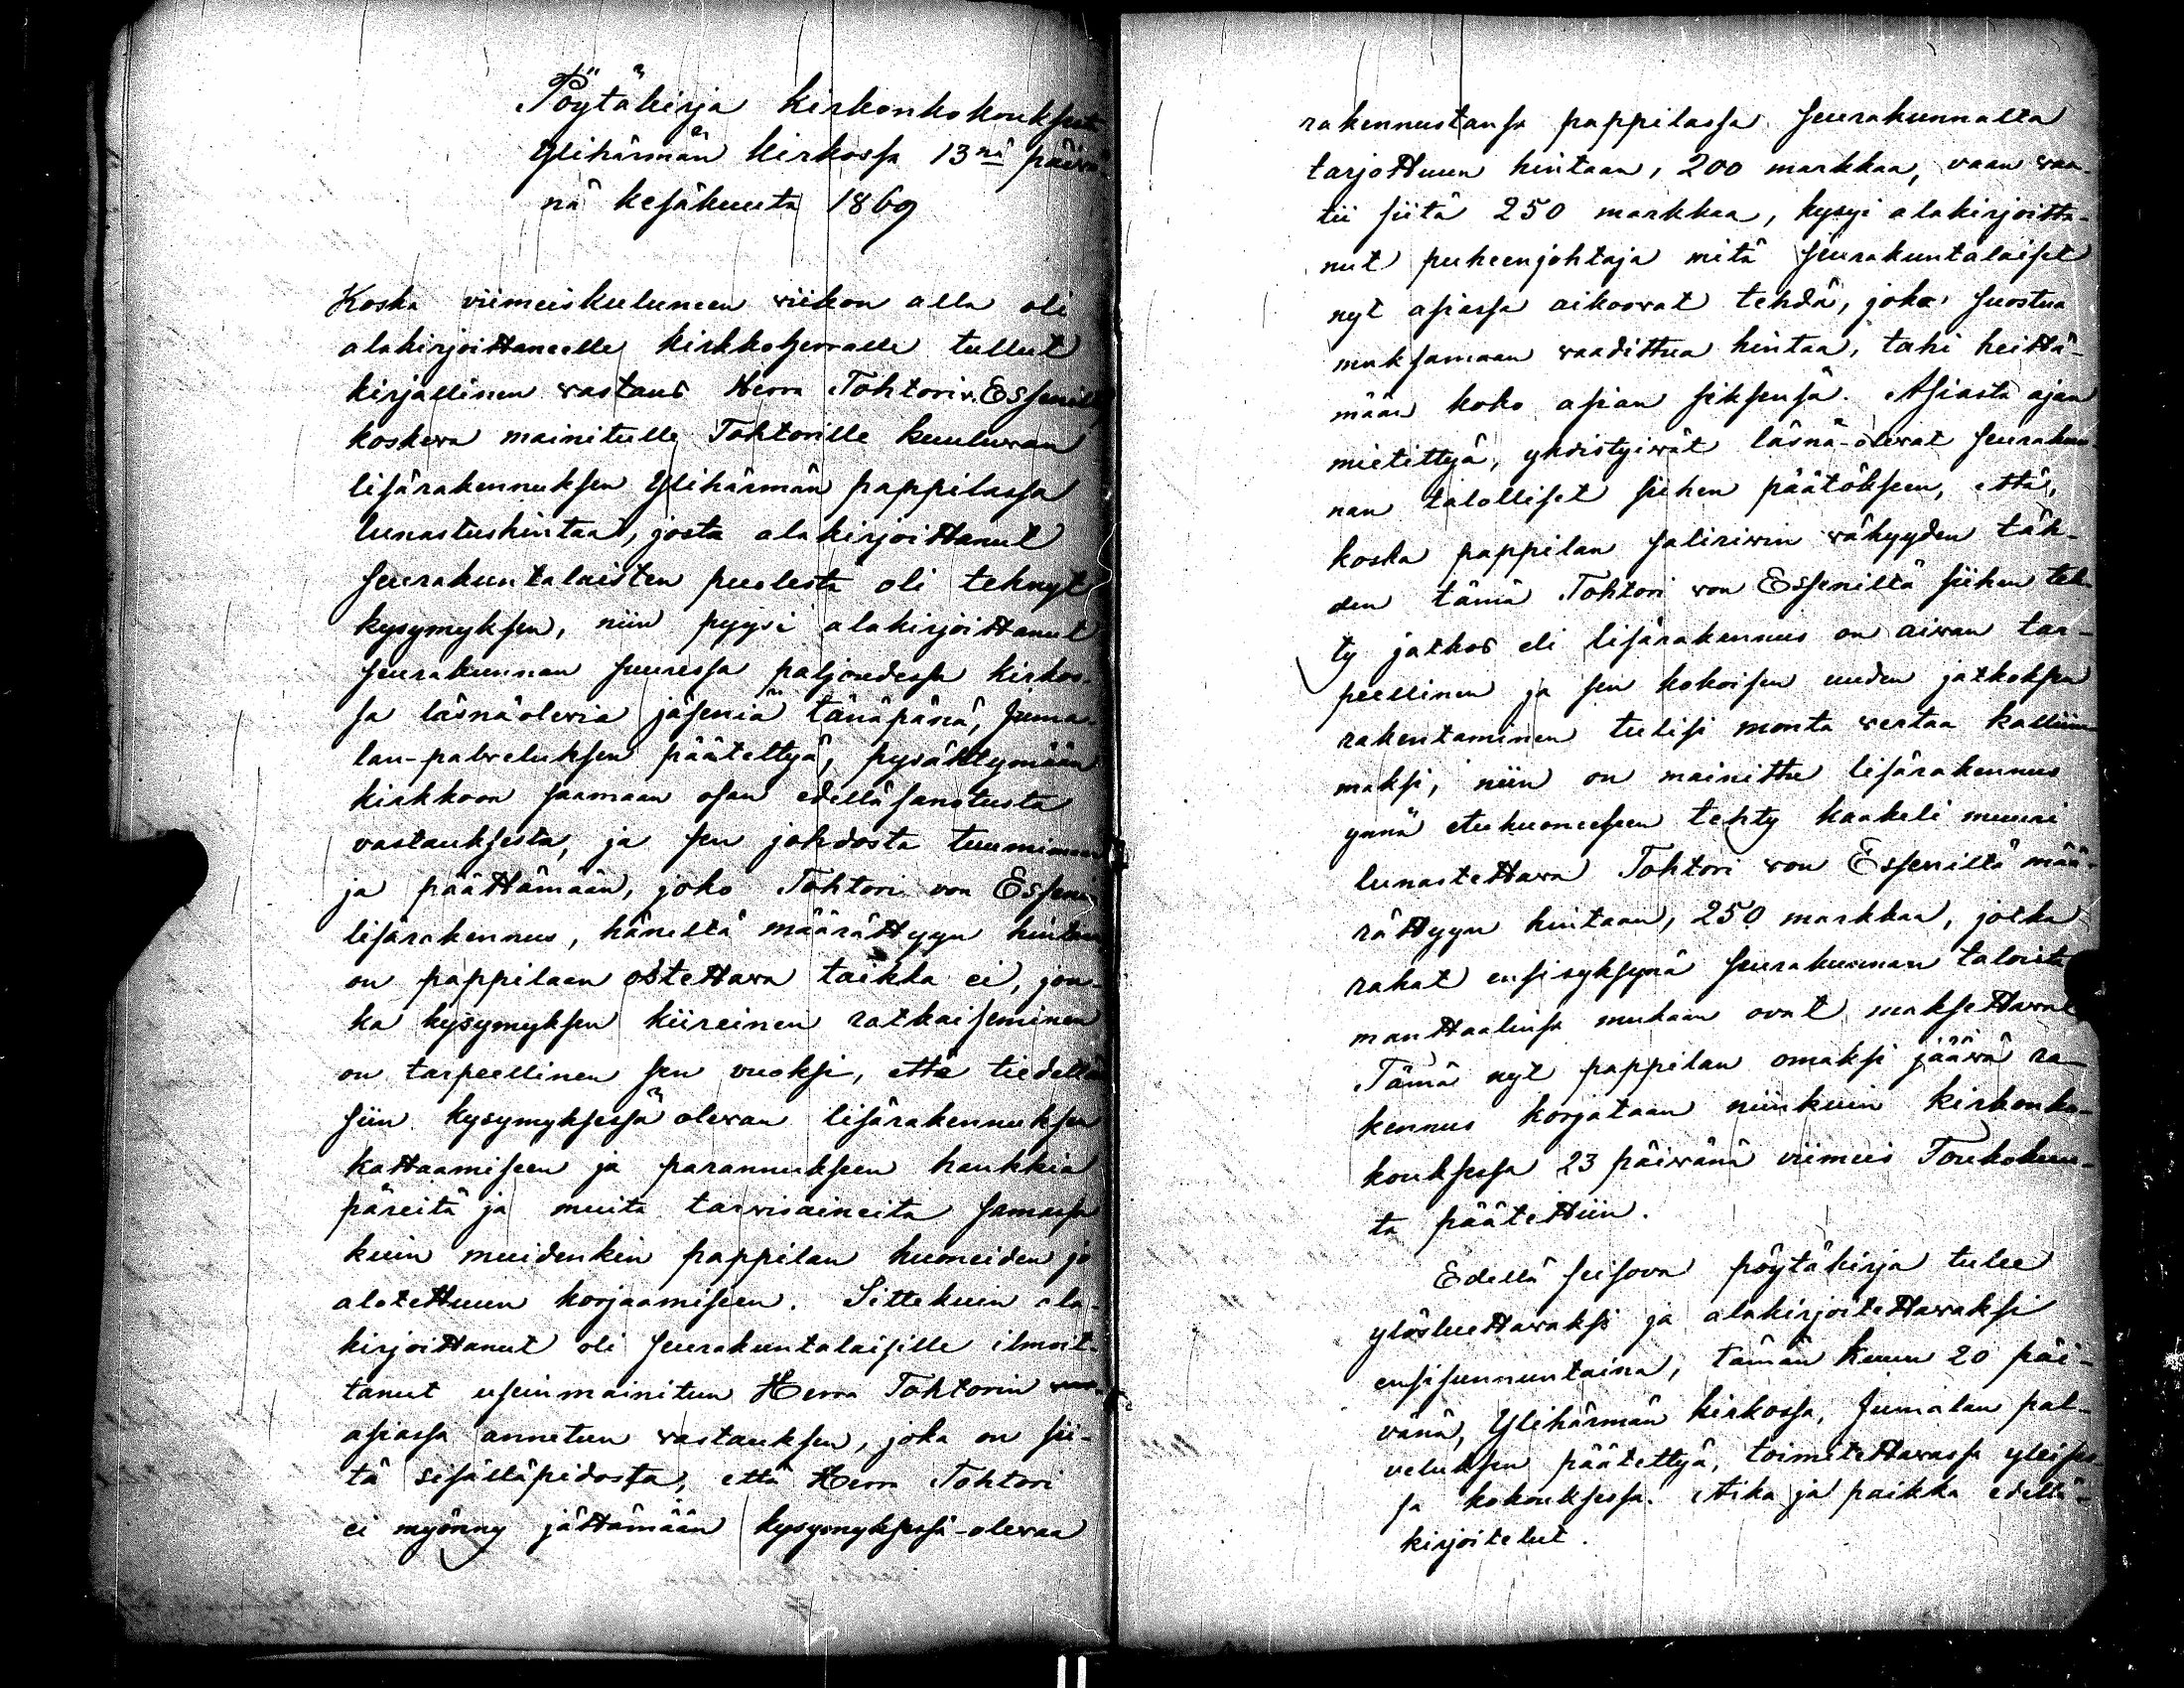 Pöytäkirja kirkonkokouksesta
Ylihärmän kirkossa 13nä päivä
nä kesäkuuta 1869
Koska viimeiskuluneen viikon alla oli
alakirjoittaneelle kirkkoherralle tullut
kirjallinen vastaus Herra Tohtori v. Essenilt
koskeva mainitulle Tohtorille kuuluwan
lisärakennuksen Ylihärmän pappilassa
lunastushintaa, josta alakirjoittanut
seurakuntalaisten puolesta oli tehnyt
kysymyksen, niin pyysi alakirjoittanut
seurakunnan suuressa paljoudessa kirkos-
sa läsnäolevia jäseniä tänäpänä, Juma-
lan-palveluksen päätettyä, pysähtymään
kirkkoon saamaan osan edelläsanotusta
vastauksesta, ja sen johdosta tuumimaan
ja päättämään, joko Tohtori von Essenin
lisärakennus, häneltä määrättyyn hintaan
on pappilaan ostettava taikka ei, jon-
ka kysymyksen kiireinen ratkaiseminen
on tarpeellinen sen vuoksi, että tiedettä
siin kysymyksessä olevan lisärakennuksen
kattaamiseen ja parannukseen hankkia
päreitä ja muita tarvisaineita samassa
kuin muidenkin pappilan huoneiden jo
alotettuun korjaamiseen. Sittekuin ala-
kirjoittanut oli seurakuntalaisille ilmoit-
tanut usein mainitun Herra Tohtorin
asiassa annetun vastauksen, joka on sii-
tä sisälläpidosta, että Herra Tohtori
ei myönny jättämään kysymyksessä-olevaa
rakennustansa pappilassa seurakunnalta
tarjottuun hintaan, 200 markkaa, vaan vaa-
tii siitä 250 markkaa, kysyi alakirjoitta-
nut puheenjohtaja mitä seurakuntalaiset
nyt asiassa aikoovat tehdä, joko suostua
maksamaan vaadittua hintaa, tahi heittä-
mään koko asian siksensä. Asiasta ajan
mietittyä, yhdistyivät läsnä-olevat seurakun-
nan talolliset siihen päätökseen, että,
koska pappilan salirivin vähyyden täh-
den tämä Tohtori von Esseniltä siihen teh-
ty jatkos eli lisärakennus on aivan tar-
peellinen ja sen kokoisen uuden jatkoksen
rakentaminen tulisi monta vertaa kalliim-
maksi, niin on mainittu lisärakennus
ynnä etuhuoneeseen tehty kaakeli muuri
lunastettava Tohtori von Esseniltä mää-
rättyyn hintaan, 250 markkaa, jotka
rahat ensisyksynä seurakunnan taloista
manttaalinsa mukaan ovat maksettavat
Tämä nyt pappilan omaksi jäävä ra-
kennus korjataan niinkuin kirkonko-
kouksessa 23 päivänä viimeis Toukokuu-
ta päätettiin.
Edellä seisova pöytäkirja tulee
ylösluettavaksi ja alakirjoitettavaksi
ensisunnuntaina, tämän kuun 20 päi-
vänä, Ylihärmän kirkossa, Jumalan pal-
veluksen päätettyä, toimitettavassa yleises
sa kokouksessa. Aika ja paikka edellä-
kirjoitetut.